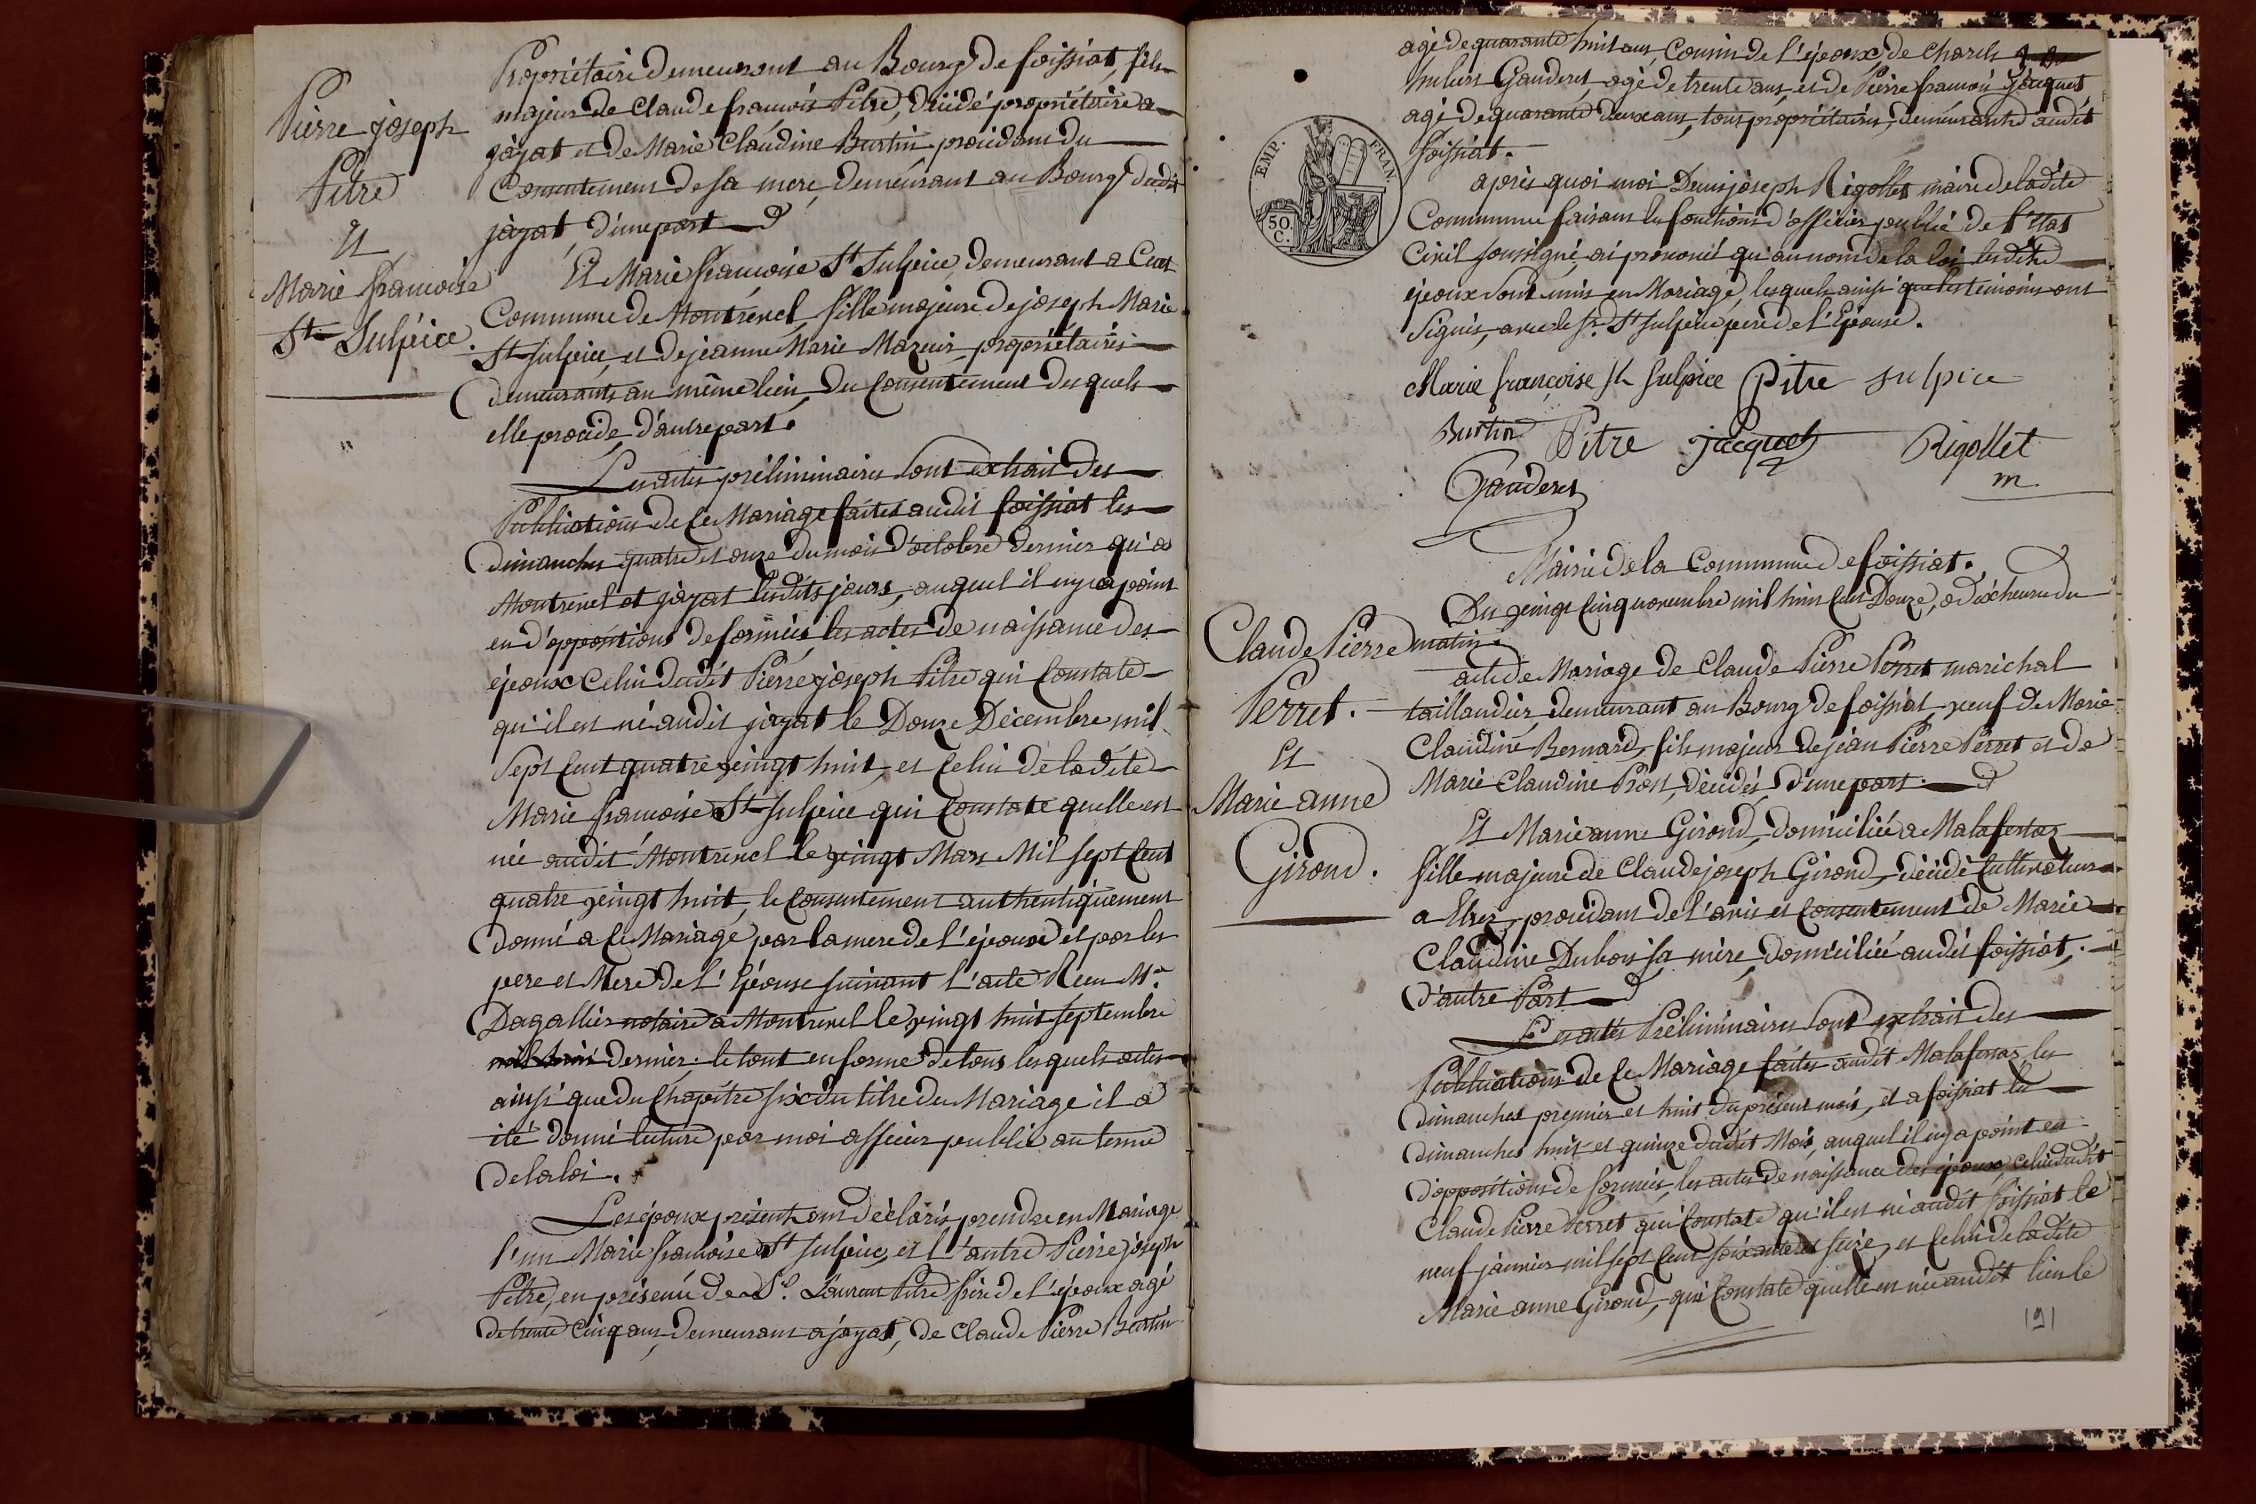 Pierre joseph
Pitre
Et
Marie francoise
St Sulpice.
Propriétaire demeurant au Bourg de foissiat, fils
majeur de Claude francois Pitre, décédé propriétaire a
jayat et de Marie Claudine Burtin procédant du
Consentement de sa mere, demeurant au Bourg dudit
jayat, d'une part
Et Marie francoise St Sulpice, demeurant a Cuet
Commune de Montrevel fille majeure de joseph Marie
St Sulpice, et de jeanne Marie Mazuir, propriétaires
demeurants au même lieu, du Consentement desquels
elle procède, d'autre part.
Les actes préliminaires sont extrait des
Publications de Ce Mariage faites audit foissiat les
dimanches quatre et onze du mois d'octobre dernier qu'a
Montrevel et jayat lesdits jours, auquel il ny a point
eu d'oppositions de formées, les actes de naissance des
époux Celui dudit Pierre joseph Pitre qui Constate
qu'il est né audit jayat le Douze Décembre mil
sept Cent quatre vingt huit, et Celui de ladite
Marie francoise St Sulpice qui Constate quelle est
née audit Montrevel le vingt Mars Mil sept Cent
quatre vingt huit, le Consentement authentiquement
donné a Ce Mariage par la mere de l'époux et par les
pere et Mere de l'Epouse suivant l'acte Recu Me.
Dagallier notaire a Montrevel le vingt huit septembre
mil huit dernier. le tout en forme de tous lesquels actes
ainsi que du Chapitre six du titre du Mariage il a
été donné lecture par moi officier public au terme
de la loi.
Les époux présent ont déclarés prendre en Mariage
l'un Marie francoise St Sulpice, et l'autre Pierre joseph
Pitre, en présence de Sr. Laurent Pitre frere de l'époux agé
de trente cinq ans, demeurant a jayat, de Claude Pierre Burtin
agé de quarante huit ans, Cousin de l'époux, de Charls
hubert Gauderet, agé de trente ans, et de Pierre francois Jacquet,
agé de quarante deux ans, tous propriétaires, demeurants audit
foissiat.
EMP. FRAN.
50 C.
après quoi moi Denis joseph Rigollet maire de ladite
Commune faisant les fonctions d'officier public de l'Etat
Civil soussigné, ai prononcé qu'au nom de la loi lesdits
époux sont unis en Mariage, lesquels ainsi que les témoins ont
signés, avec le Sr. St Sulpice pere de l'Epouse.
Marie françoise St Sulpice Pitre Sulpice
Burtin Pitre jacquet Rigollet
Gauderet m
Mairie de la Commune de foissiat.
Du vingt Cinq novembre mil huit Cent Douze, a dix heures du
matin.
Claude Pierre
Perret.
Et
Marie anne
Girond.
acte de Mariage de Claude Pierre Perret marichal
taillandier, demeurant au Bourg de foissiat, veuf de Marie
Claudine Bernard, fils majeur de jean Pierre Perret et de
Marie Claudine Prost, décédés, d'une part.
Et Marie anne Girond, domiciliée a Malafretaz
fille majeure de Claude joseph Girond, décédé Cultivateur
a Etrez, procédant de l'avis et Consentement de Marie
Claudine Dubois sa mère, domiciliée audit foissiat,
d'autre Part
Les actes Préliminaires sont extrait des
Publications de Ce Mariage faites audit Malafretaz les
dimanches premier et huit du présent mois, et a foissiat les
dimanches huit et quinze dudit Mois, auquel il ny a point eu
d'oppositions de formées, les actes de naissance des époux, celui dudit
Claude Pierre Perret qui Constate qu'il est né audit foissiat le
neuf janvier mil sept Cent soixante et seize, et Celui de ladite
Marie anne Girond, qui Constate quelle est née audit lieu le
191